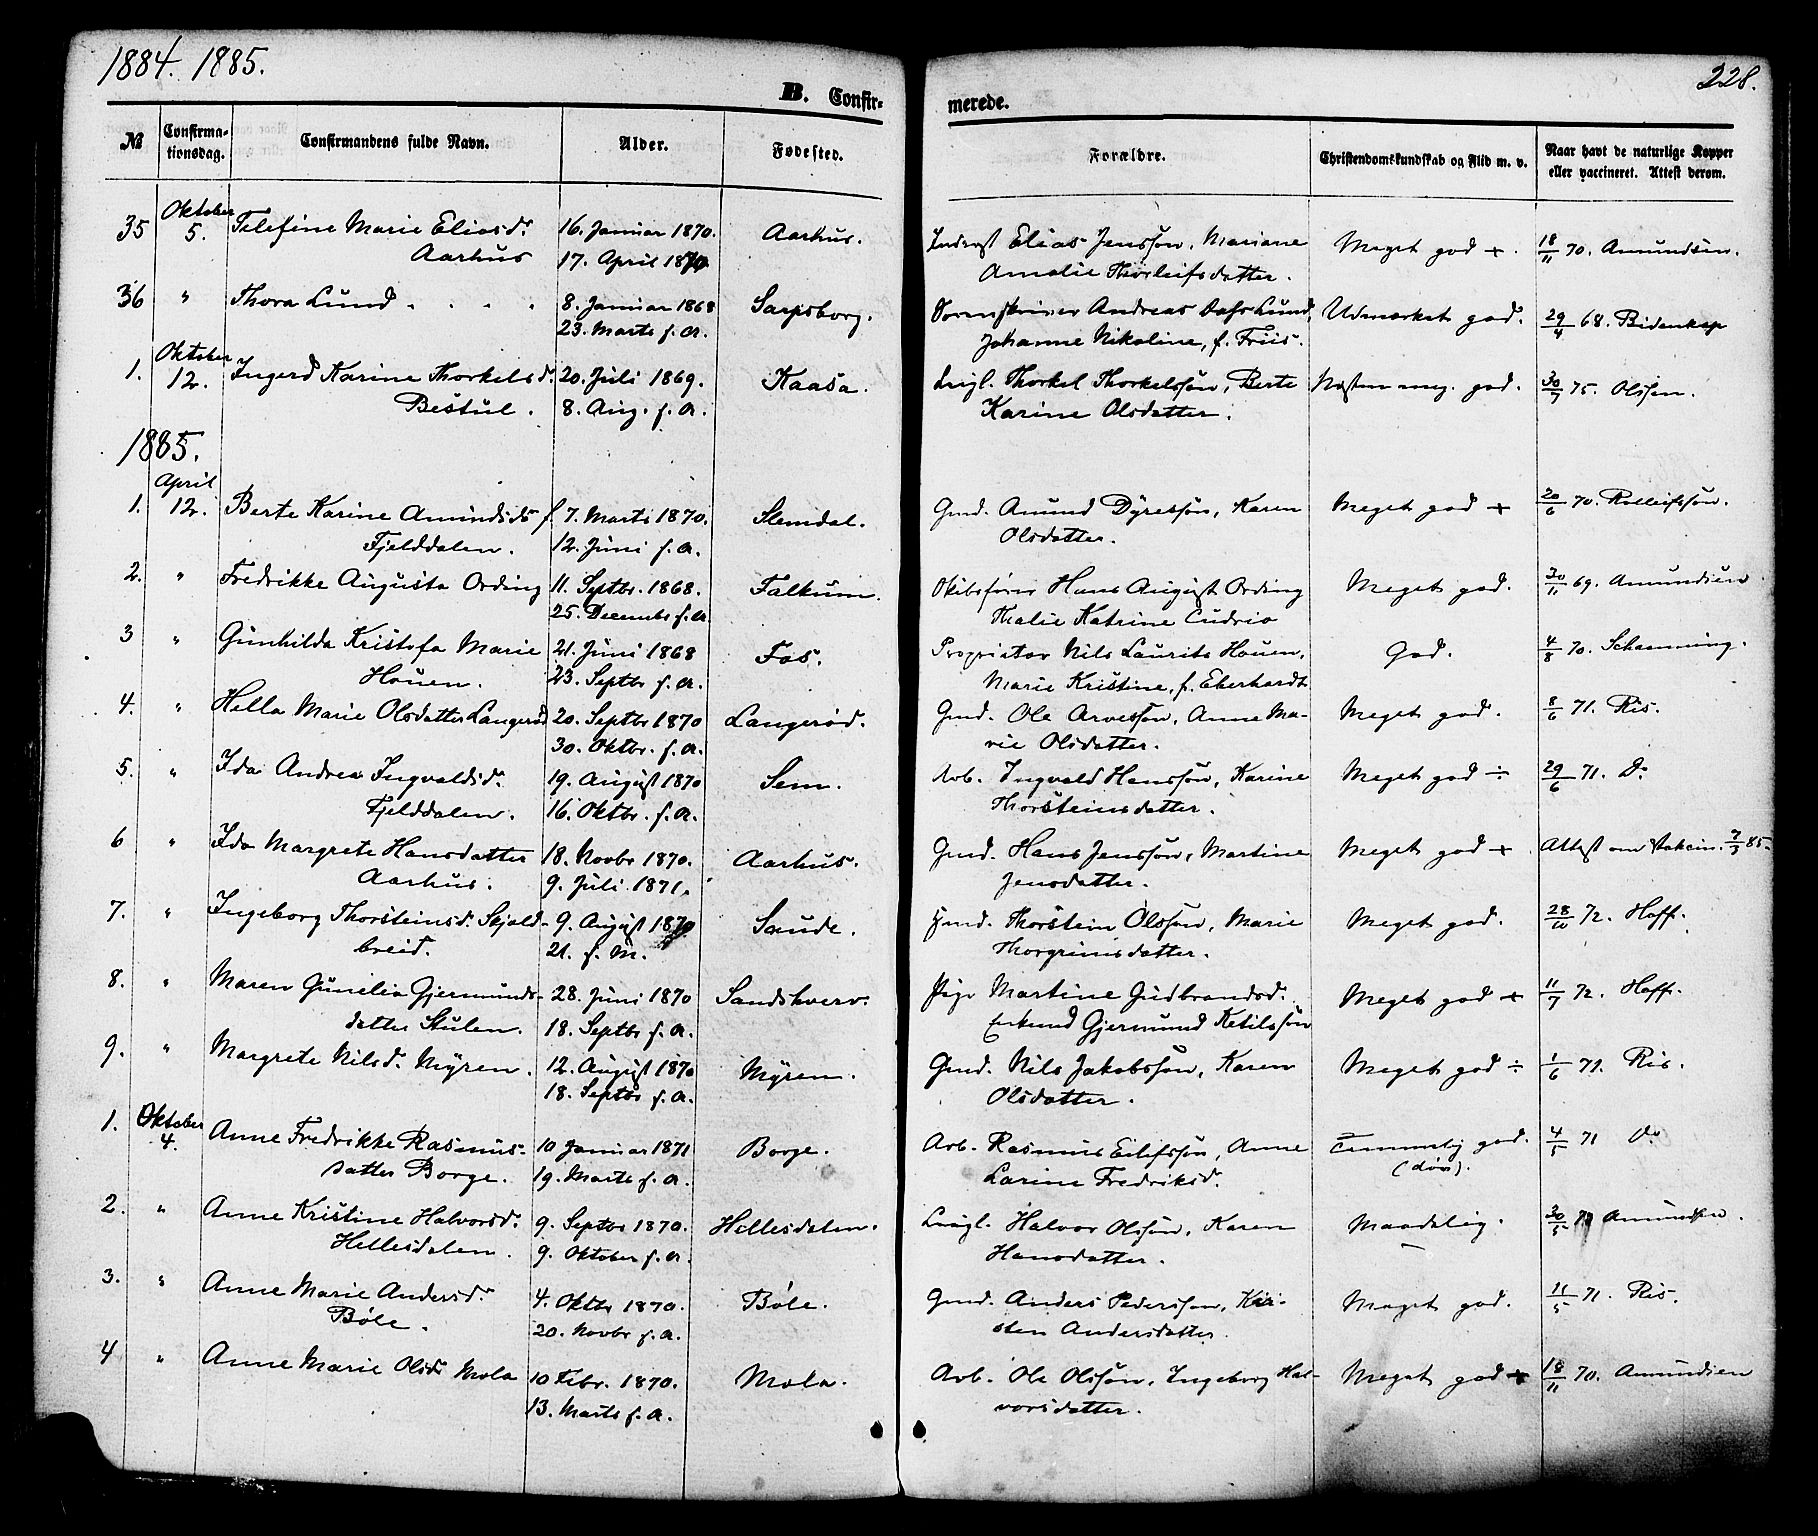 1884. 1885.
228.
B. Confir-
merede.
№
Confirma-
tionsdag.
Confirmandens fulde Navn.
Alder.
Fødested.
Forældre.
Christendomskundskab og Flid m. v.
Naar havt de naturlige Kopper
eller vaccineret. Attest derom.
35 Oktober 5. Telefine Marie Eliasd. 16. Januar 1870. Aarhus. Elias Jenssøn, Mariane Meget god + 18/11 70. Amundsen.
Aarhus 17. April 1870 Amalie Thorleifsdatter.
36 " Thora Lund 8. Januar 1868 Sarpsborg. Sorenskriver Andreas Lund, Udmærket god. 29/4 68. Bidenkap
23. Marts s. A. Johanne Nikoline, f. Friis.
1. Oktober 12. Ingerd Karine Thorkelsd. 20. Juli 1869. Kaasa. Leigl. Thorkel Thorkelssøn, Berte Næsten meg. god. 30/7 75. Olssen.
Bestul. 8. Aug. s. A. Karine Olsdatter.
1885.
1. April 12. Berte Karine Amundsd. 7. Marts 1870. Slemdal. Gmd. Amund Dyressøn, Karen Meget god + 20/6 70. Rolleifssøn.
Fjelddalen. 12. Juni s. A. Olsdatter.
2. " Fredrikke Augusta Ording 11. Septbr. 1868. Falkum. Skibsfører Hans August Ording Meget god. 30/11 69. Amundsen
25. Decembr s. A. Thalie Katrine Cudrio
3 " Gunhilda Kristofa Marie 21. Juni 1868 Fos. Proprietær Nils Laurits Houen, God. 4/8 70. Schanning.
Houen. 23. Septbr s. A. Marie Kristine, f. Eberhardt
4. " Hella Marie Olsdatter Langerød 20. Septbr 1870 Langerød. Gmd. Ole Arvessøn, Anne Ma- Meget god. 8/6 71. Ris.
30. Oktbr. s. A. rie Olsdatter.
5. " Ida Andrea Ingvaldsd. 19. August 1870 Sem. Arb. Ingvald Hanssøn, Karine Meget god ÷ 29/6 71. Do
Fjelddalen. 16. Oktbr. s. A. Thorsteinsdatter.
6 " Ida Margrete Hansdatter 18. Novbr 1870. Aarhus. Gmd. Hans Jenssøn, Martine Meget god + Attest om Vakcin. 7/3 85.
Aarhus. 9. Juli 1871. Jensdatter.
7. " Ingeborg Thorsteinsd. Skjold- 9. August 1870 Saude. Gmd. Thorstein Olssøn, Marie Meget god. 28/10 72. Hoff.
breid. 21. s. M. Thorgrimsdatter.
8. " Maren Gunelia Gjermunds- 28. Juni 1870 Sandshverv. Pige Martine Gudbrandsd. Meget god + 11/7 72. Hoff.
datter Stulen. 18. Septbr s. A. Enkemd Gjermund Ketilssøn
9. " Margrete Nilsd. Myren. 12. August 1870 Myren. Gmd. Nils Jakobssøn, Karen Meget god ÷ 1/6 71. Ris.
18. Septbr s. A. Olsdatter.
1. Oktober 4. Anne Fredrikke Rasmus- 10 Januar 1871 Borge. Arb. Rasmus Eilefssøn, Anne Temmelig god. 4/5 71 Do
datter Borge. 19. Marts s. A. Larine Fredriksd. (døv).
2. " Anne Kristine Halvorsd. 9. Septbr 1870. Hellesdalen. Leigl. Halvor Olssøn, Karen Maadelig. 30/5 Amundsen.
Hellesdalen. 9. Oktober s. A. Hansdatter.
3. " Anne Marie Andersd. 4. Oktbr 1870. Bøle. Gmd. Anders Pederssøn, Kir- Meget god. 11/5 71. Ris.
Bøle. 20. Novbr s. A. sten Andersdatter.
4 " Anne Marie Olsd. Mola 10 Febr. 1870. Mola. Arb. Ole Olssøn, Ingeborg Hal- Meget god + 18/11 70. Amundsen
13. Marts s. A. vorsdatter.